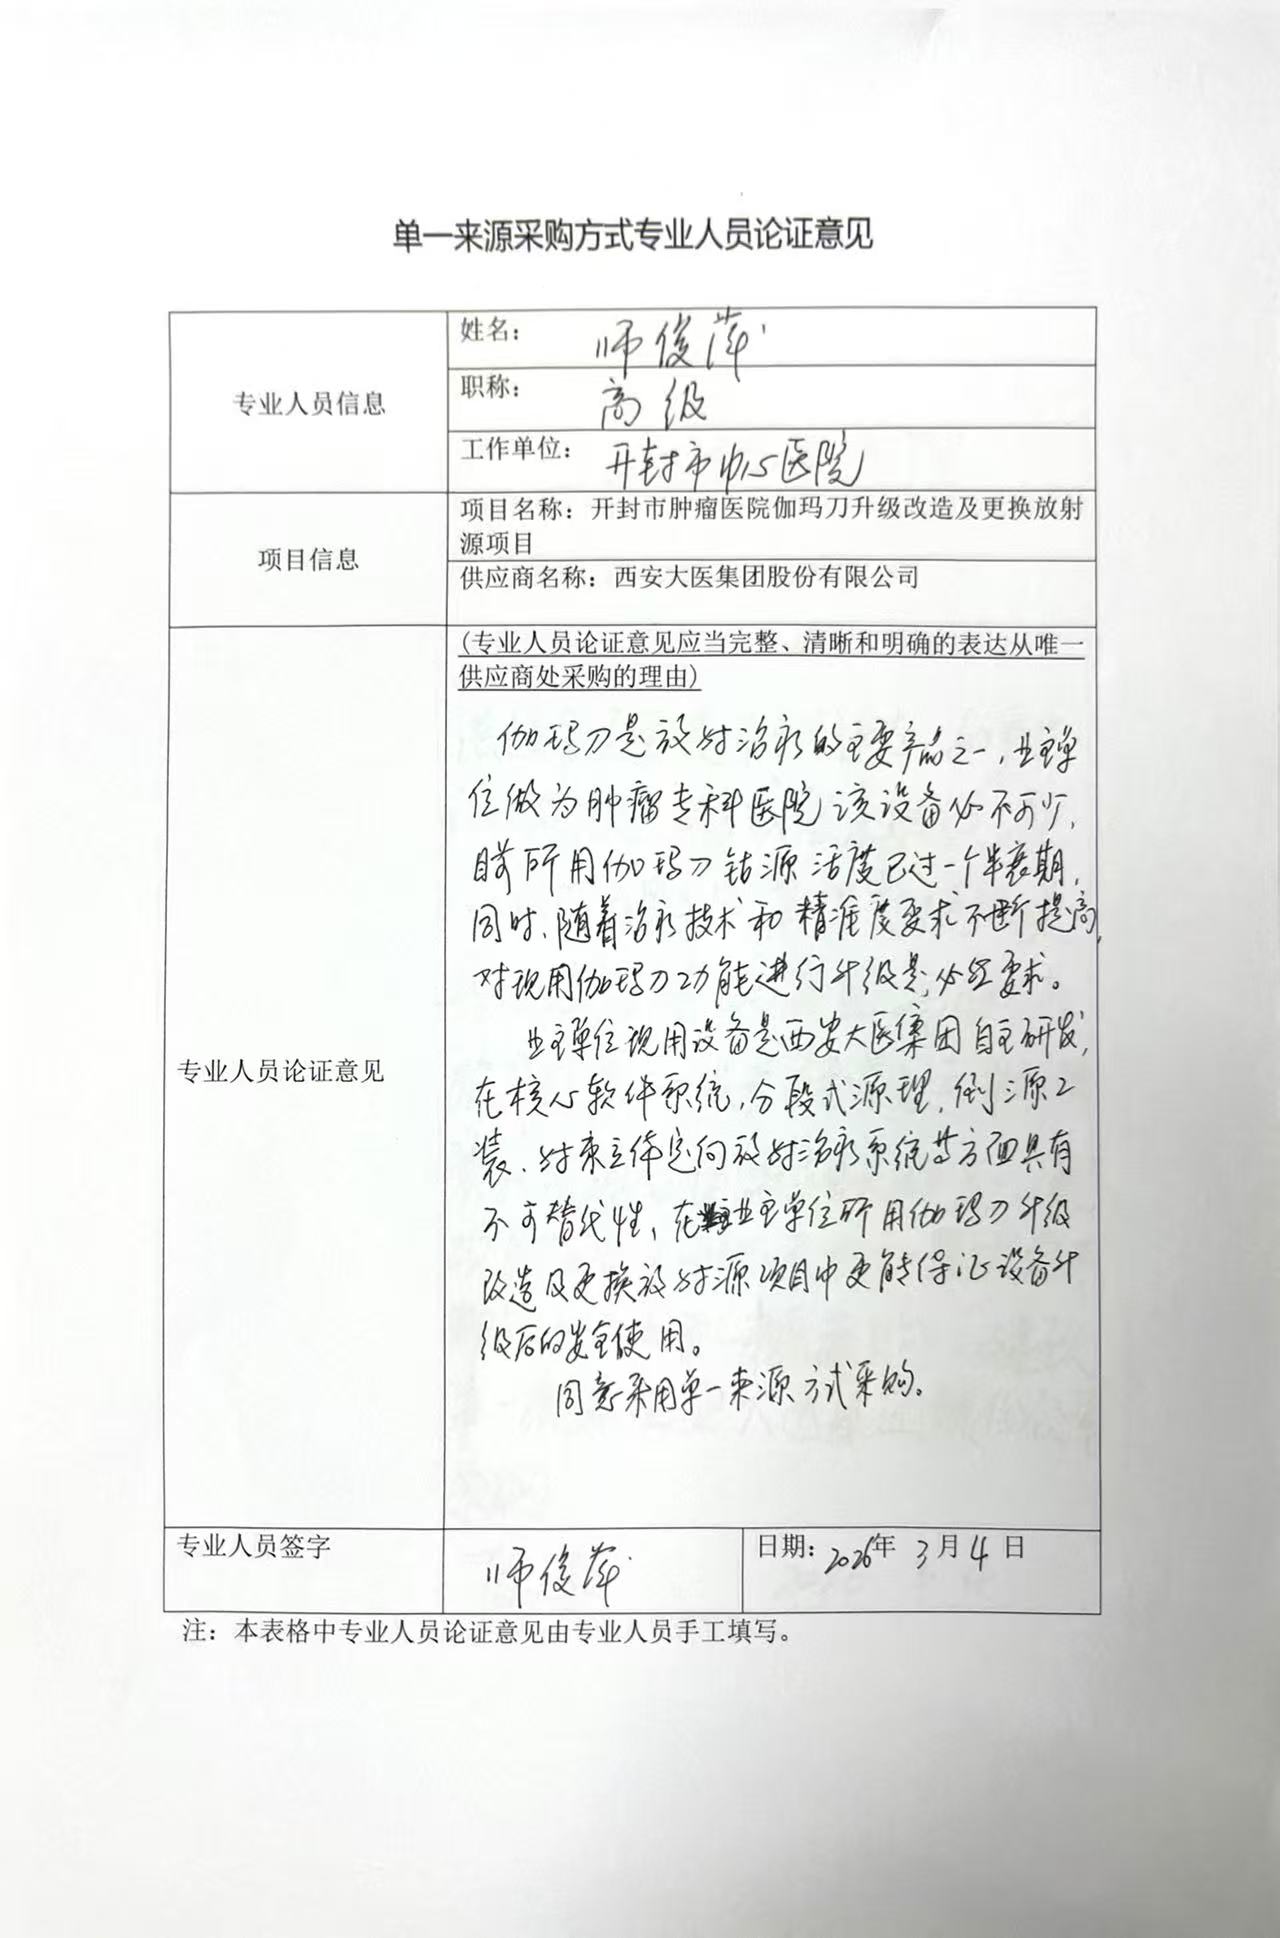 单一来源采购方式专业人员论证意见
专业人员信息
姓名： 师俊萍
职称： 高级
工作单位： 开封市中心医院
项目信息
项目名称：开封市肿瘤医院伽玛刀升级改造及更换放射
源项目
供应商名称：西安大医集团股份有限公司
专业人员论证意见
(专业人员论证意见应当完整、清晰和明确的表达从唯一
供应商处采购的理由)
伽玛刀是放射治疗的主要产品之一，业主单
位做为肿瘤专科医院该设备必不可少，
目前所用伽玛刀钴源活度已过一个半衰期，
同时、随着治疗技术和精准度要求不断提高，
对现用伽玛刀功能进行升级是必经要求。
业主单位现用设备是西安大医集团自主研发，
在核心软件系统，分段式源理，倒源工
装、射束立体定向放射治疗系统等方面具有
不可替代性，在业主单位所用伽玛刀升级
改造及更换放射源项目中更能保证设备升
级后的安全使用。
同意采用单一来源方式采购。
专业人员签字
师俊萍
日期：2026年 3月4日
注：本表格中专业人员论证意见由专业人员手工填写。